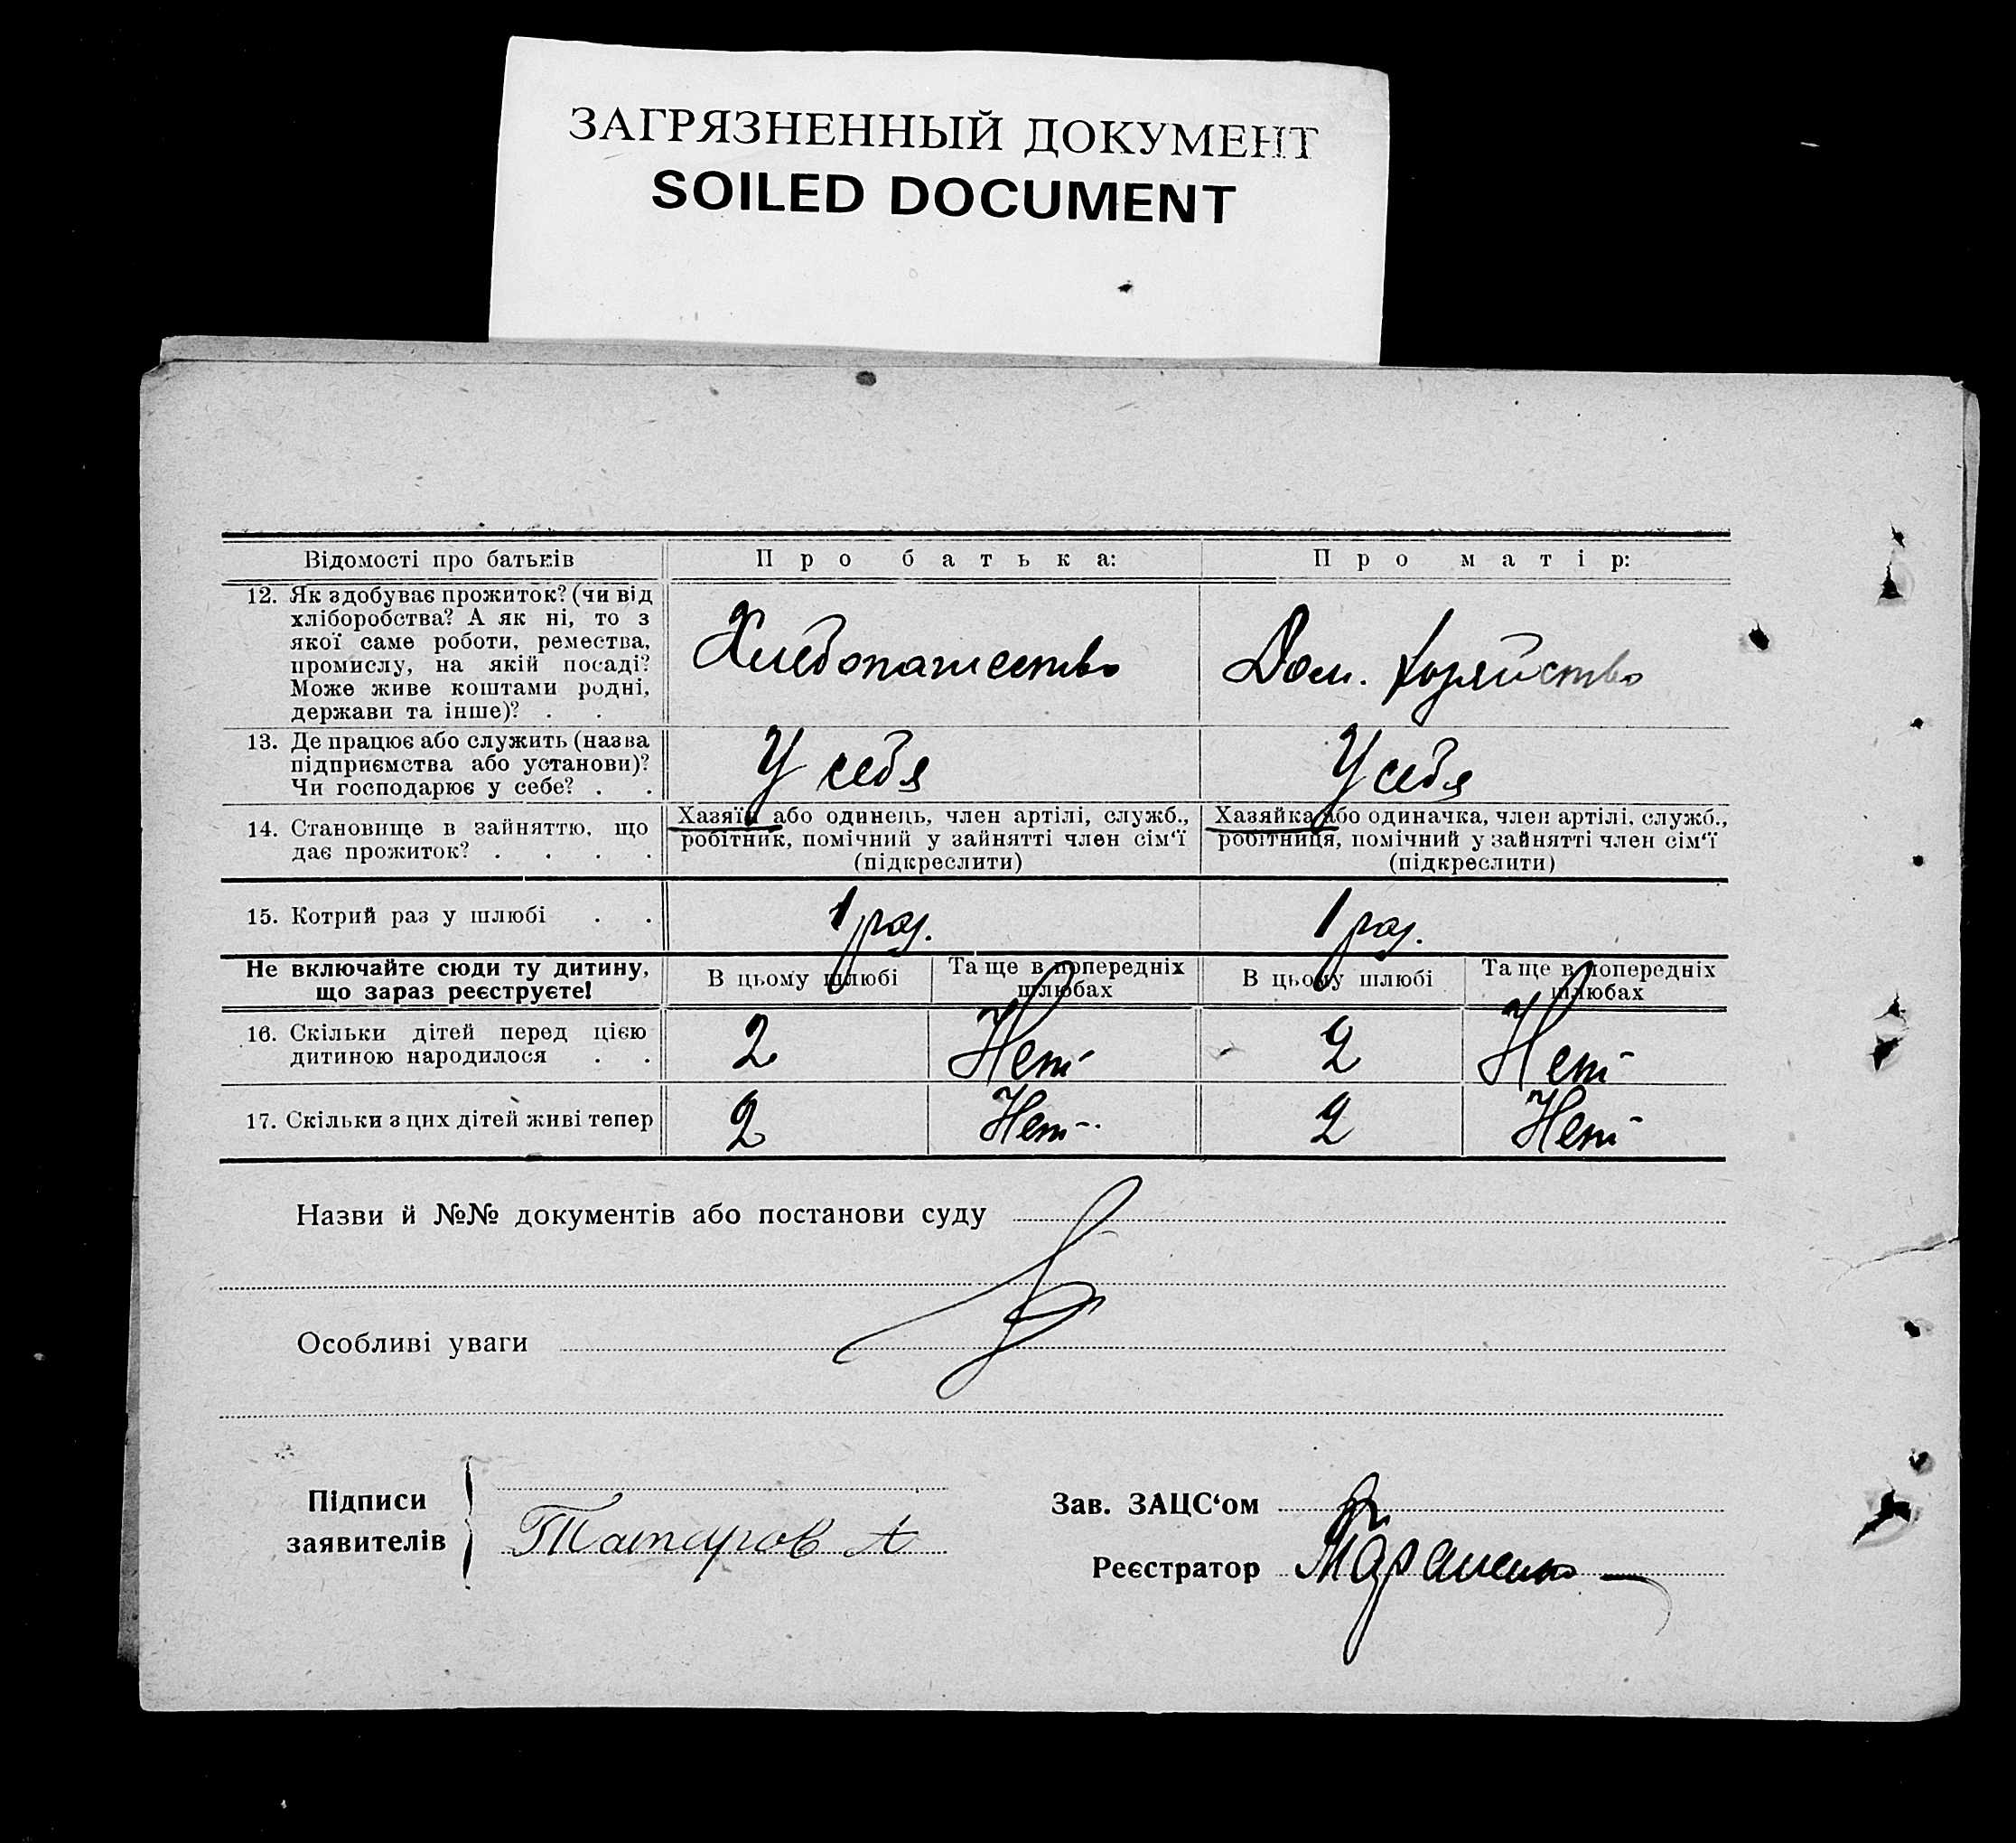 ЗАГРЯЗНЕННЫЙ ДОКУМЕНТ
SOILED DOCUMENT
Відомості про батьків
Про батька:
Про матір:
12. Як здобуває прожиток? (чи від
хліборобства? А як ні, то з
якої саме роботи, ремества,
промислу, на якій посаді?
Може живе коштами родні,
держави та інше)? . .
Хлебопашество
Дом. хозяйство
13. Де працює або служить (назва
підприємства або установи)?
Чи господарює у себе? . .
У себя
У себя
14. Становище в зайняттю, що
дає прожиток? . . . .
Хазяїн або одинець, член артілі, служб.,
робітник, помічний у зайнятті член сім‘ї
(підкреслити)
Хазяйка або одиначка, член артілі, служб.,
робітниця, помічний у зайнятті член сім‘ї
(підкреслити)
15. Котрий раз у шлюбі . .
1 раз.
1 раз.
Не включайте сюди ту дитину,
що зараз реєструєте!
В цьому шлюбі
Та ще в попередніх
шлюбах
В цьому шлюбі
Та ще в попередніх
шлюбах
16. Скільки дітей перед цією
дитиною народилося . .
2
Нет
2
Нет
17. Скільки з цих дітей живі тепер
2
Нет
2
Нет
Назви й №№ документів або постанови суду
Особливі уваги
Підписи
заявителів
Татаров А
Зав. ЗАЦС‘ом
Реєстратор